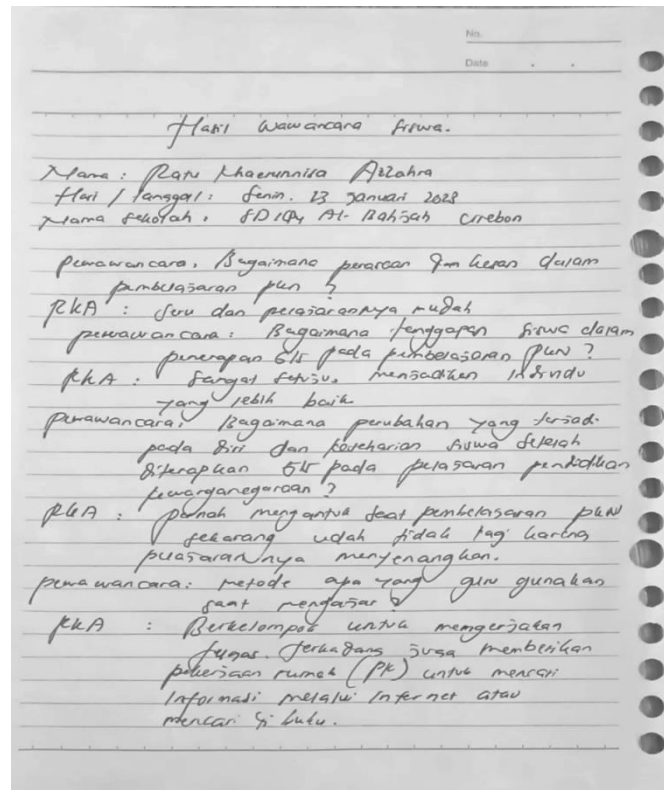 No.
Date
Hasil Wawancara Siswa.
Nama : Ratu Khaerunnisa Azzahra
Hari / tanggal : Senin, 23 Januari 2023
Nama Sekolah : SD IQu Al-Bahjah Cirebon
pewawancara : Bagaimana perasaan dan kesan dalam
pembelajaran pkn ?
RKA : Seru dan pelajarannya mudah
pewawancara : Bagaimana tanggapan siswa dalam
penerapan pada pembelajaran PKN ?
RKA : Sangat setuju, menjadikan individu
yang lebih baik
Pewawancara : Bagaimana perubahan yang terjadi
pada diri dan keseharian siswa setelah
diterapkan pada pelajaran pendidikan
kewarganegaraan ?
RKA : pernah mengantuk saat pembelajaran PKN
sekarang udah tidak lagi karena
pelajarannya menyenangkan.
pewawancara : metode apa yang guru gunakan
saat mengajar ?
RKA : Berkelompok untuk mengerjakan
tugas. terkadang juga memberikan
pekerjaan rumah (PR) untuk mencari
Informasi melalui Internet atau
mencari di buku.